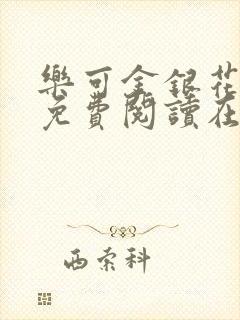 樂可金銀花
免費閱讀在
西索科